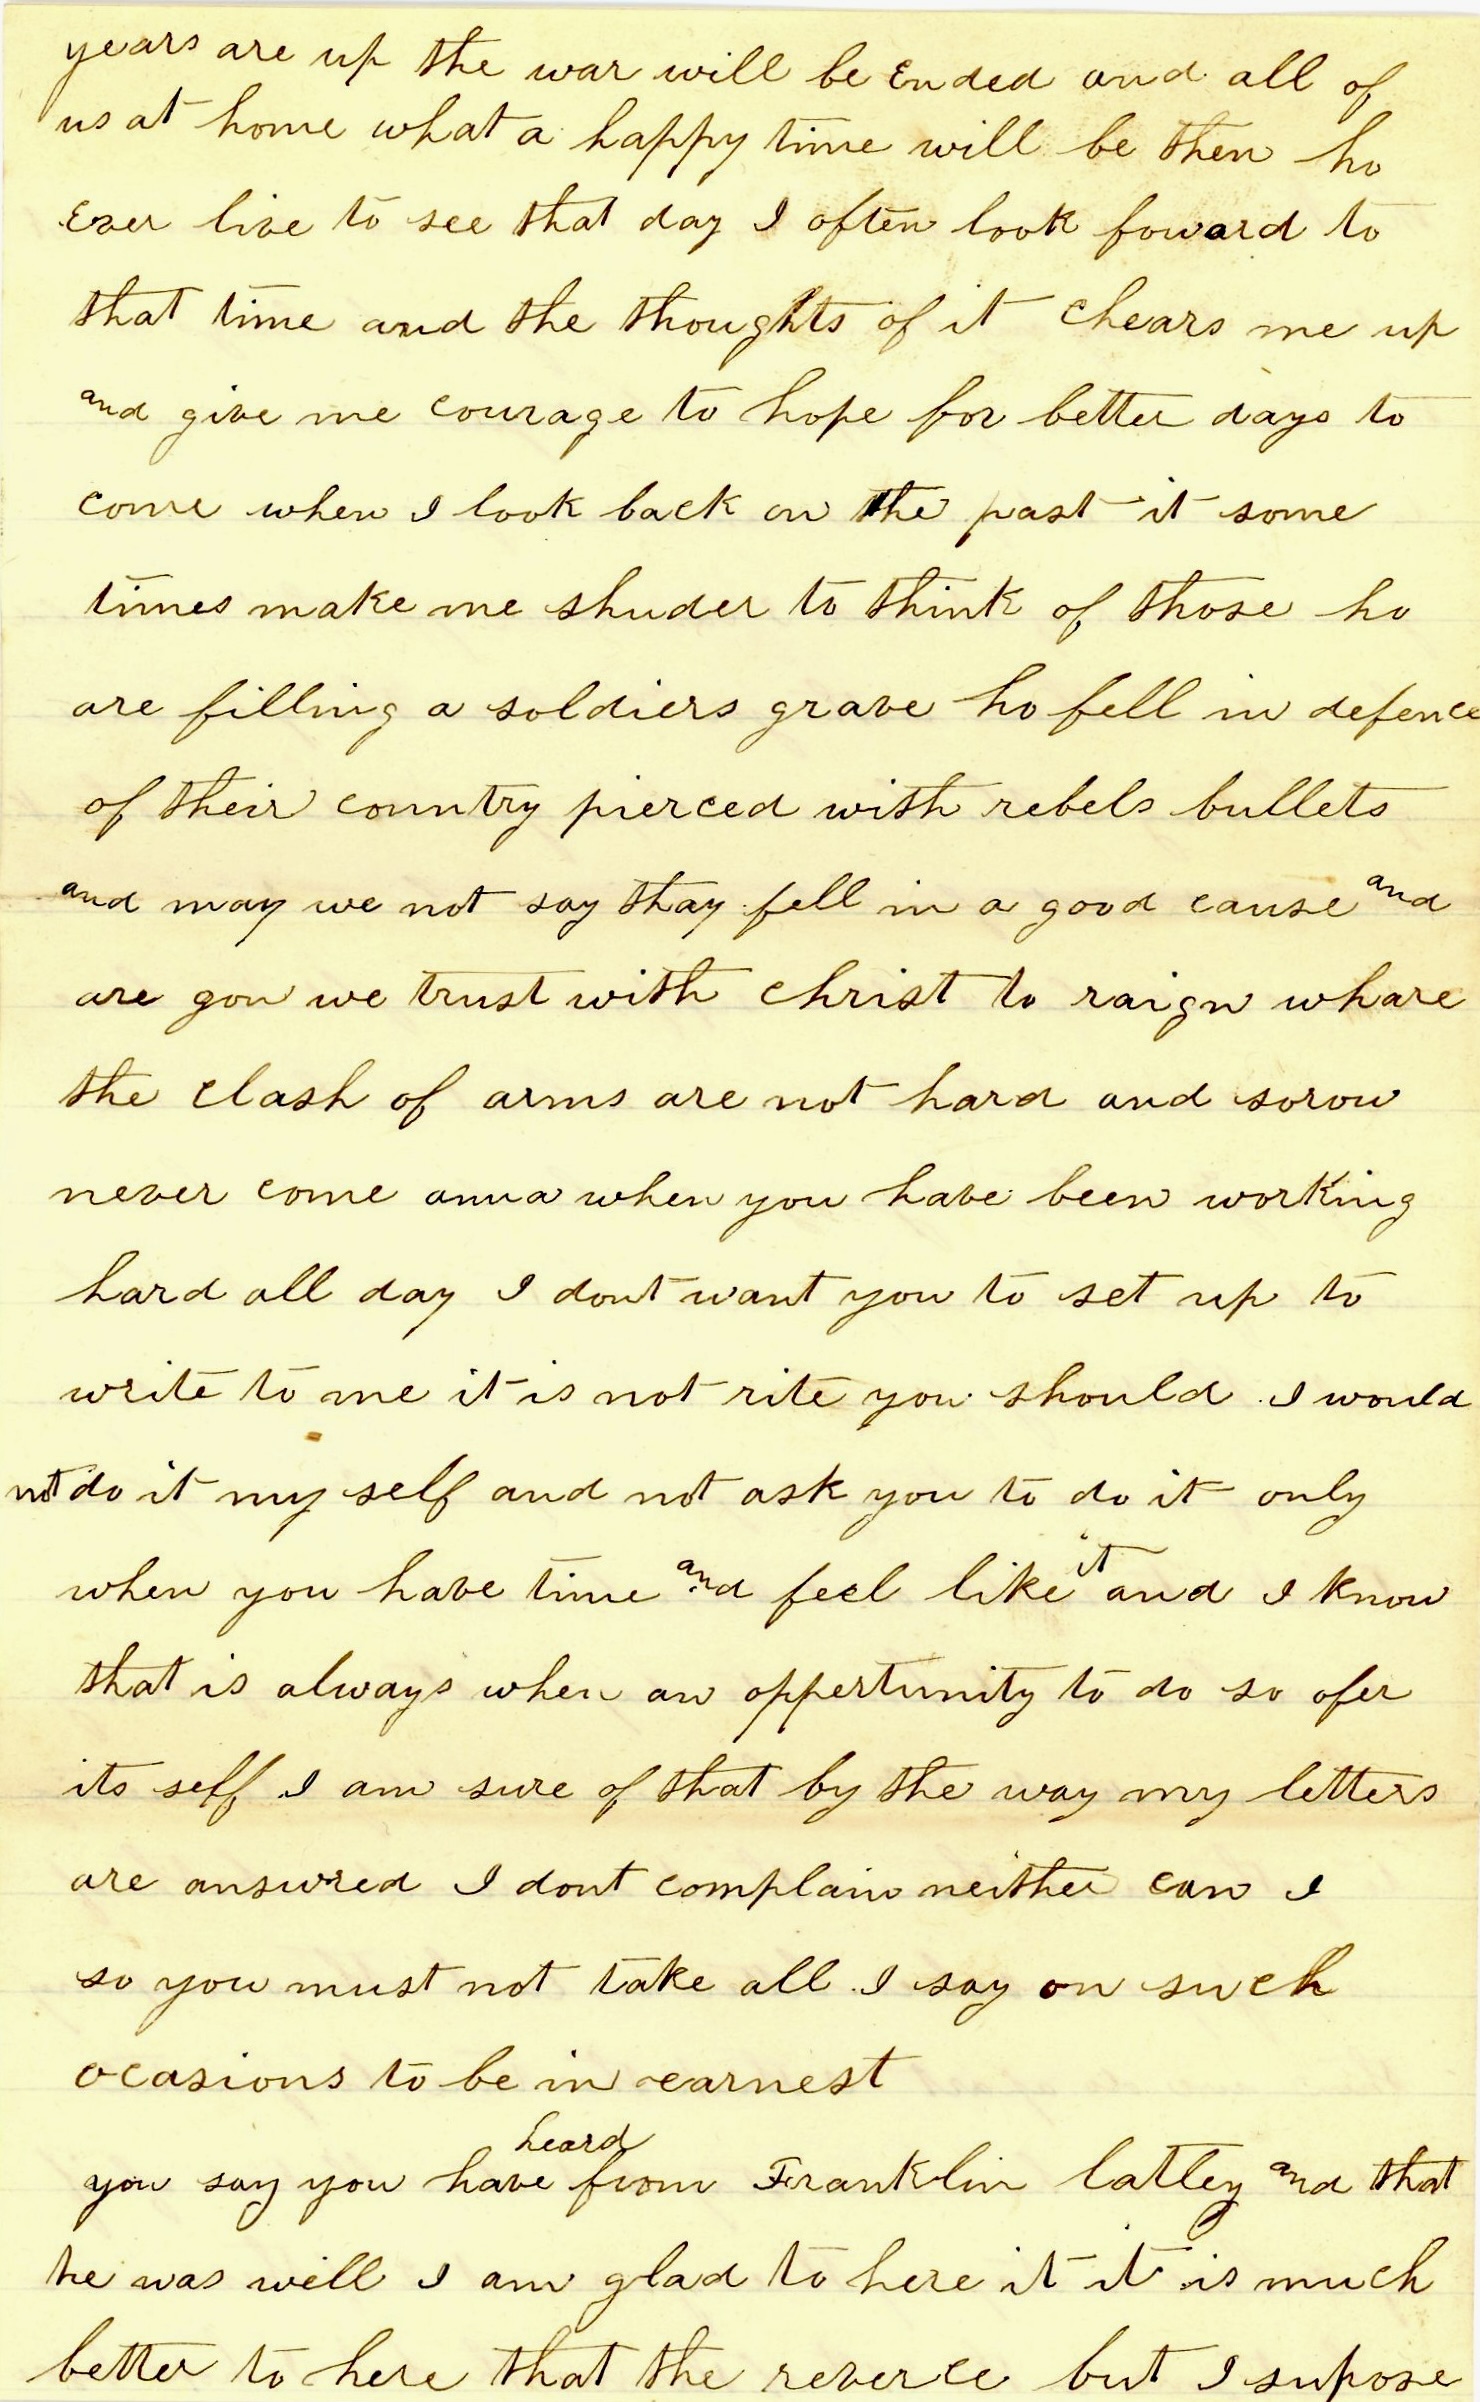 years are up the war will be Ended and all of
us at home what a happy time will be then ho
Ever live to see that day I often look foward to
that time and the thoughts of it chears me up
and give me courage to hope for better days to
come when I look back on the past it some
times make me shuder to think of those ho
are filling a soldiers grave ho fell in defence
of their country pierced with rebels bullets
and may we not say thay fell in a good cause and
are gon we trust with christ to raign whare
the clash of arms are not hard and sorow
never come anna when you have been working
hard all day I dont want you to set up to
write to me it is not rite you should I would
not do it my self and not ask you to do it only
when you have time and feel like it and I know
that is always when an oppertunity to do so ofer
its self I am sure of that by the way my letters
are answred I dont complain neither can I
so you must not take all I say on such
ocasions to be in earnest
you say you have heard from Franklin latley and that
he was well I am glad to here it it is much
better to here that the reverce but I supose